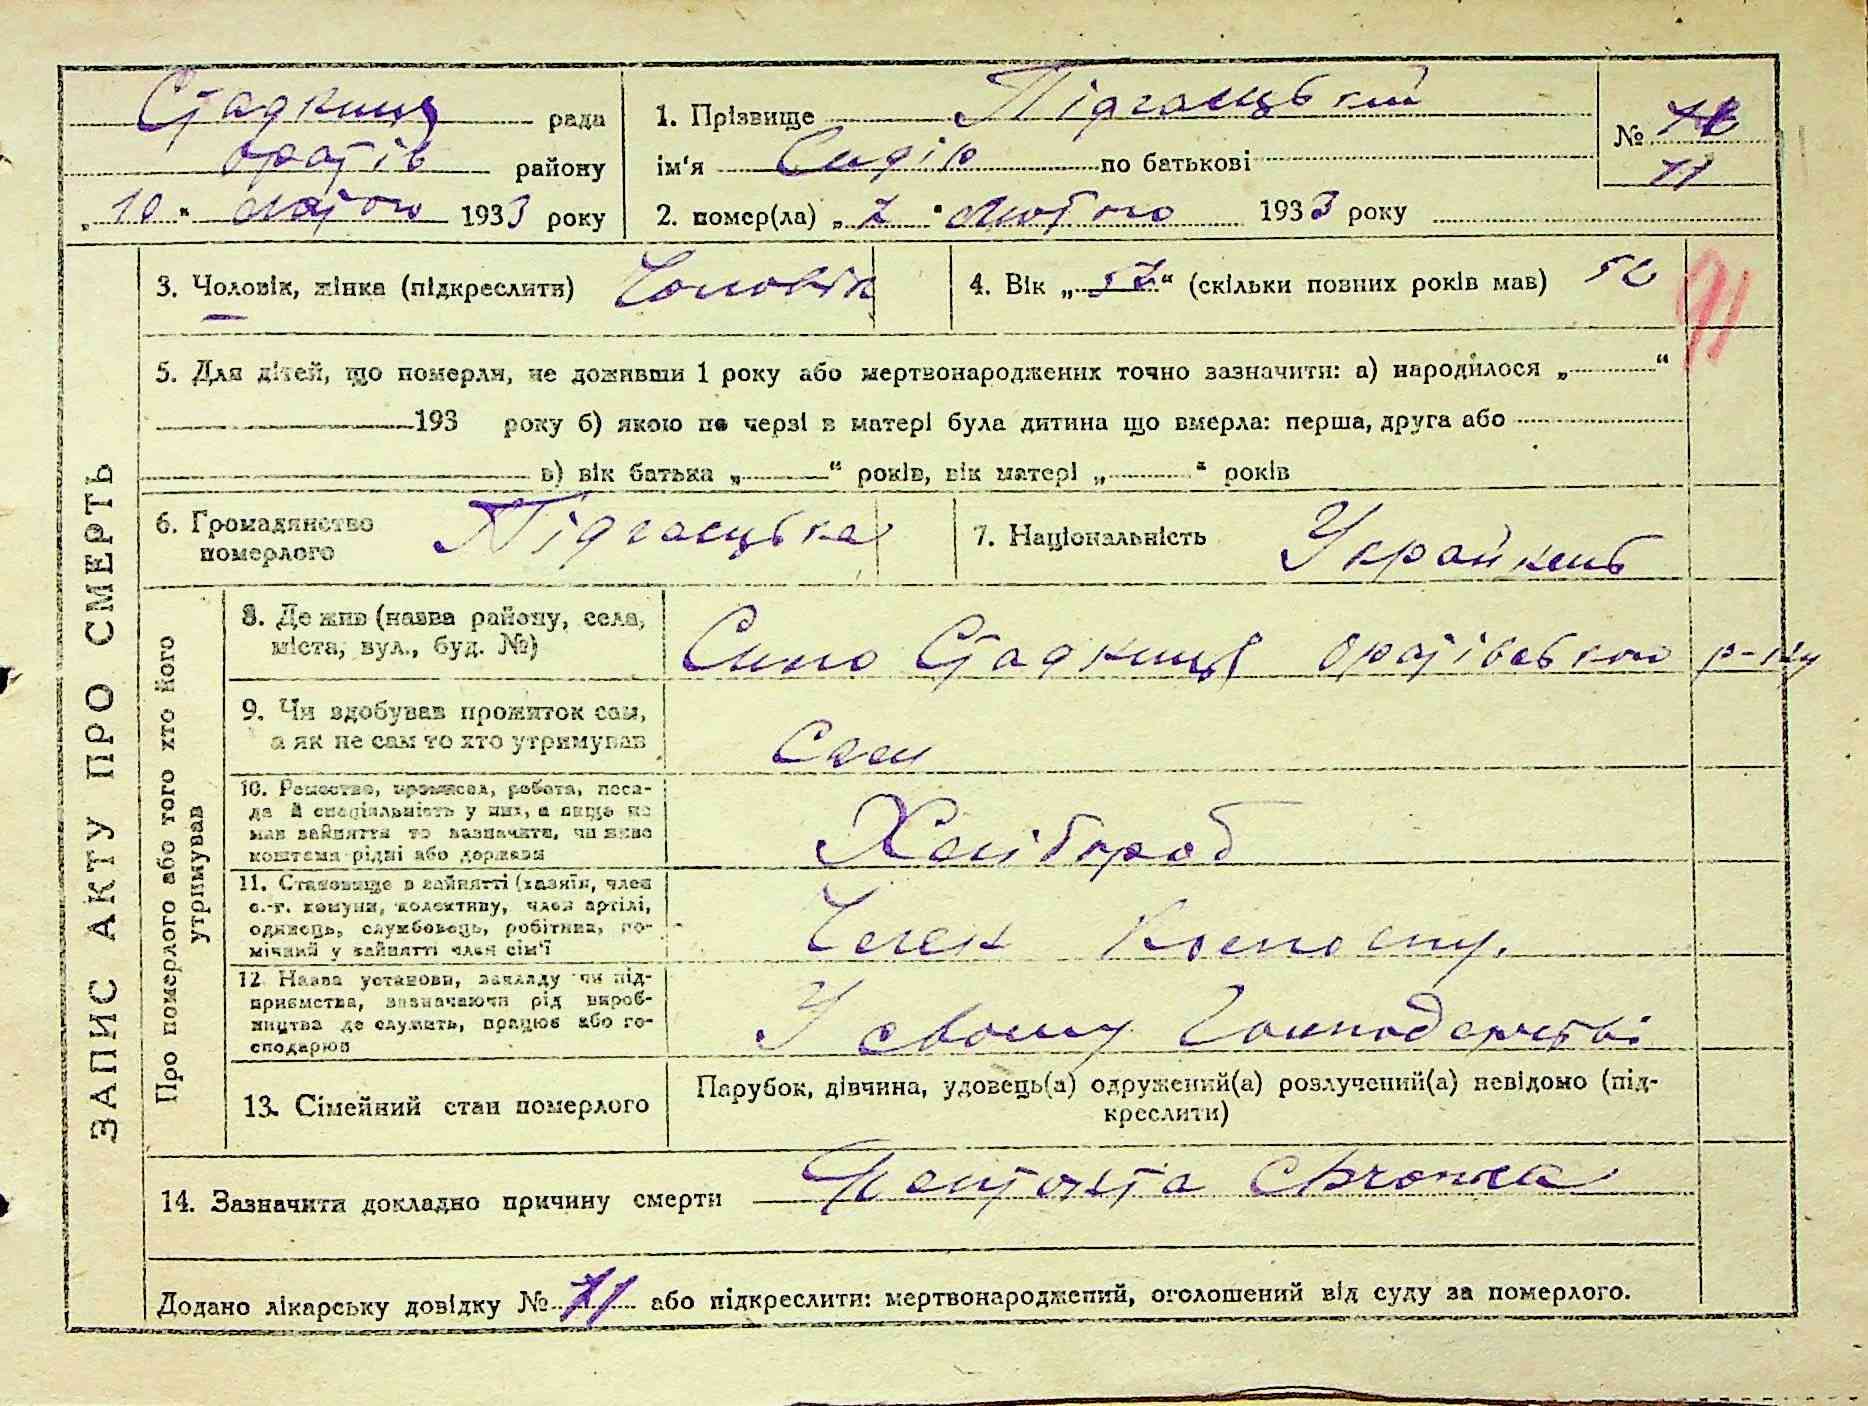 Стадниця рада
Оратів району
„10“ лютого 1933 року
1. Прізвище Підгаєцький
ім'я Сидір по батькові
2. помер(ла) „7“ лютого 1933 року
№
11
3. Чоловік, жінка (підкреслити) Чоловік
4. Вік „52“ (скільки повних років мав) 52
91
5. Для дітей, що померли, не доживши 1 року або мертвонароджених точно зазначити: а) народилося „ “
193 року б) якою по черзі в матері була дитина що вмерла: перша, друга або
в) вік батька „ “ років, вік матері „ “ років
6. Громадянство
померлого Підгаєцька
7. Національність Українець
ЗАПИС АКТУ ПРО СМЕРТЬ
Про померлого або того хто його
утримував
8. Де жив (назва району, села,
міста, вул., буд. №) Село Стадниця Оратівського р-ну
9. Чи здобував прожиток сам,
а як не сам то хто утримував сам
10. Ремество, промисел, робота, поса-
да й спеціяльність у них, а якщо не
мав зайняття то зазначити, чи живе
коштами рідні або держави Хлібороб
11. Становище в зайнятті (хазяїн, член
с.-г. комуни, колективу, член артілі,
одинець, службовець, робітник, по-
мічний у зайнятті член сім'ї Член
12. Назва установи, закладу чи під-
приємства, зазначаючи рід вироб-
ництва де служить, працює або го-
сподарює У своєму господарстві
13. Сімейний стан померлого
Парубок, дівчина, удовець(а) одружений(а) розлучений(а) невідомо (під-
креслити)
14. Зазначити докладно причину смерти
Додано лікарську довідку № 71 або підкреслити: мертвонароджений, оголошений від суду за померлого.